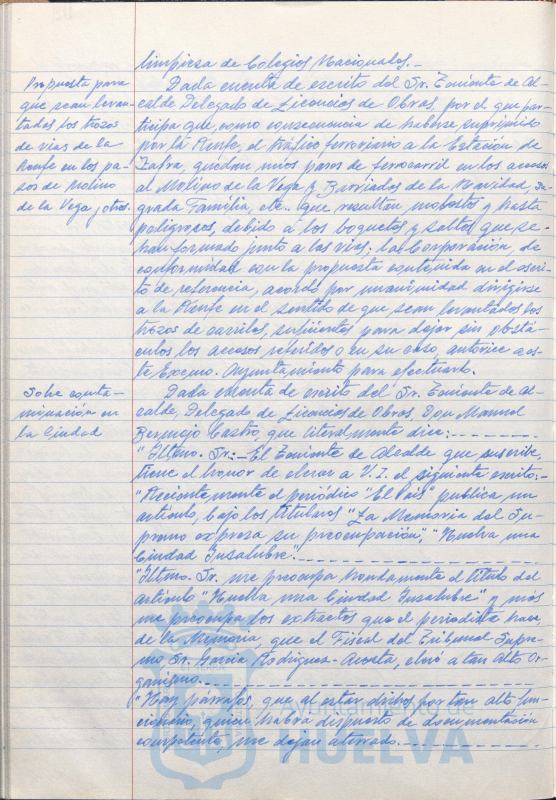 limpieza de Colegios Nacionales.-
Propuesta para
que sean levan-
tados los trozos
de vias de la
Renfe en los pa-
sos de Molino
de la Vega y otros.
Dada cuenta de escrito del Sr. Teniente de Al-
calde Delegado de Licencias de Obras, por el que par-
ticipa que, como consecuencia de haberse suprimido
por la Renfe, el tráfico ferroviario a la Estación de
Zafra, quedan unos pasos de ferrocarril en los accesos
al Molino de la Vega y Barriadas de la Navidad, Sa-
grada Familia, etc. que resultan molestos y hasta
peligrosos, debido a los boquetes y saltos que se
han formado junto a las vias. la Corporación, de
conformidad con la propuesta contenida en el escri-
to de referencia, acordó por unanimidad dirigirse
a la Renfe en el sentido de que sean levantados los
trozos de carriles, suficientes para dejar sin obstá-
culos los accesos referidos o en su caso, autorice a es-
te Excmo. Ayuntamiento para efectuarlo.
Sobre conta-
minación en
la Ciudad
Dada cuenta de escrito del Sr. Teniente de Al-
calde, Delegado de Licencias de Obras, Don Manuel
Bermejo Castro, que literalmente dice:-
"Iltmo. Sr.:- El Teniente de Alcalde que suscribe,
tiene el honor de elevar a V.I. el siguiente escrito:-
"Recientemente el periódico "El Pais" publica un
artículo, bajo los titulares "La Memoria del Su-
premo expresa su preocupación", "Huelva una
Ciudad Insalubre".-
"Iltmo. Sr. me preocupa hondamente el título del
artículo "Huelva una Ciudad Insalubre" y más
me preocupa los extractos que el periodista hace
de la Memoria, que el Fiscal del Tribunal Supre-
mo, Sr. García Rodríguez-Acosta, elevó a tan Alto Or-
ganismo.-
"Hay párrafos, que al estar dichos por tan alto fun-
cionario, quien habrá dispuesto de documentación
competente, me dejan aterrado.-
HUELVA